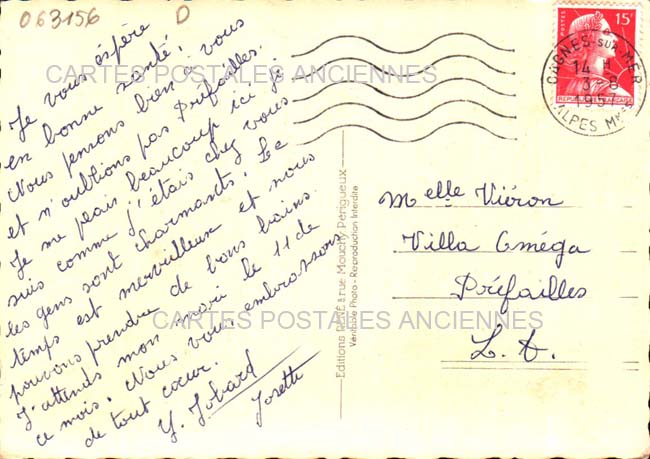 063156 D
Je vous espère
en bonne santé.
Nous pensons bien à vous
et n'oublions pas Préfailles.
Je me plais beaucoup ici je
suis comme j'étais chez vous
les gens sont charmants. Le
temps est merveilleux et nous
pouvons prendre de bons bains.
J'attends mon mari le 11 de
ce mois. Nous vous embrassons
de tout coeur.
Y. Jobard
Josette
CARTES POSTALES ANCIENNES
CARTES POSTALES ANCIENNES
Editions RENÉ 8 rue Mouchy Périgueux
Véritable Photo - Reproduction Interdite
POSTES 15F
REPUBLIQUE FRANÇAISE
CAGNES-SUR-MER
14 H
3-8
195
ALPES MMES
Melle Viéron
Villa Oméga
Préfailles
L. A.